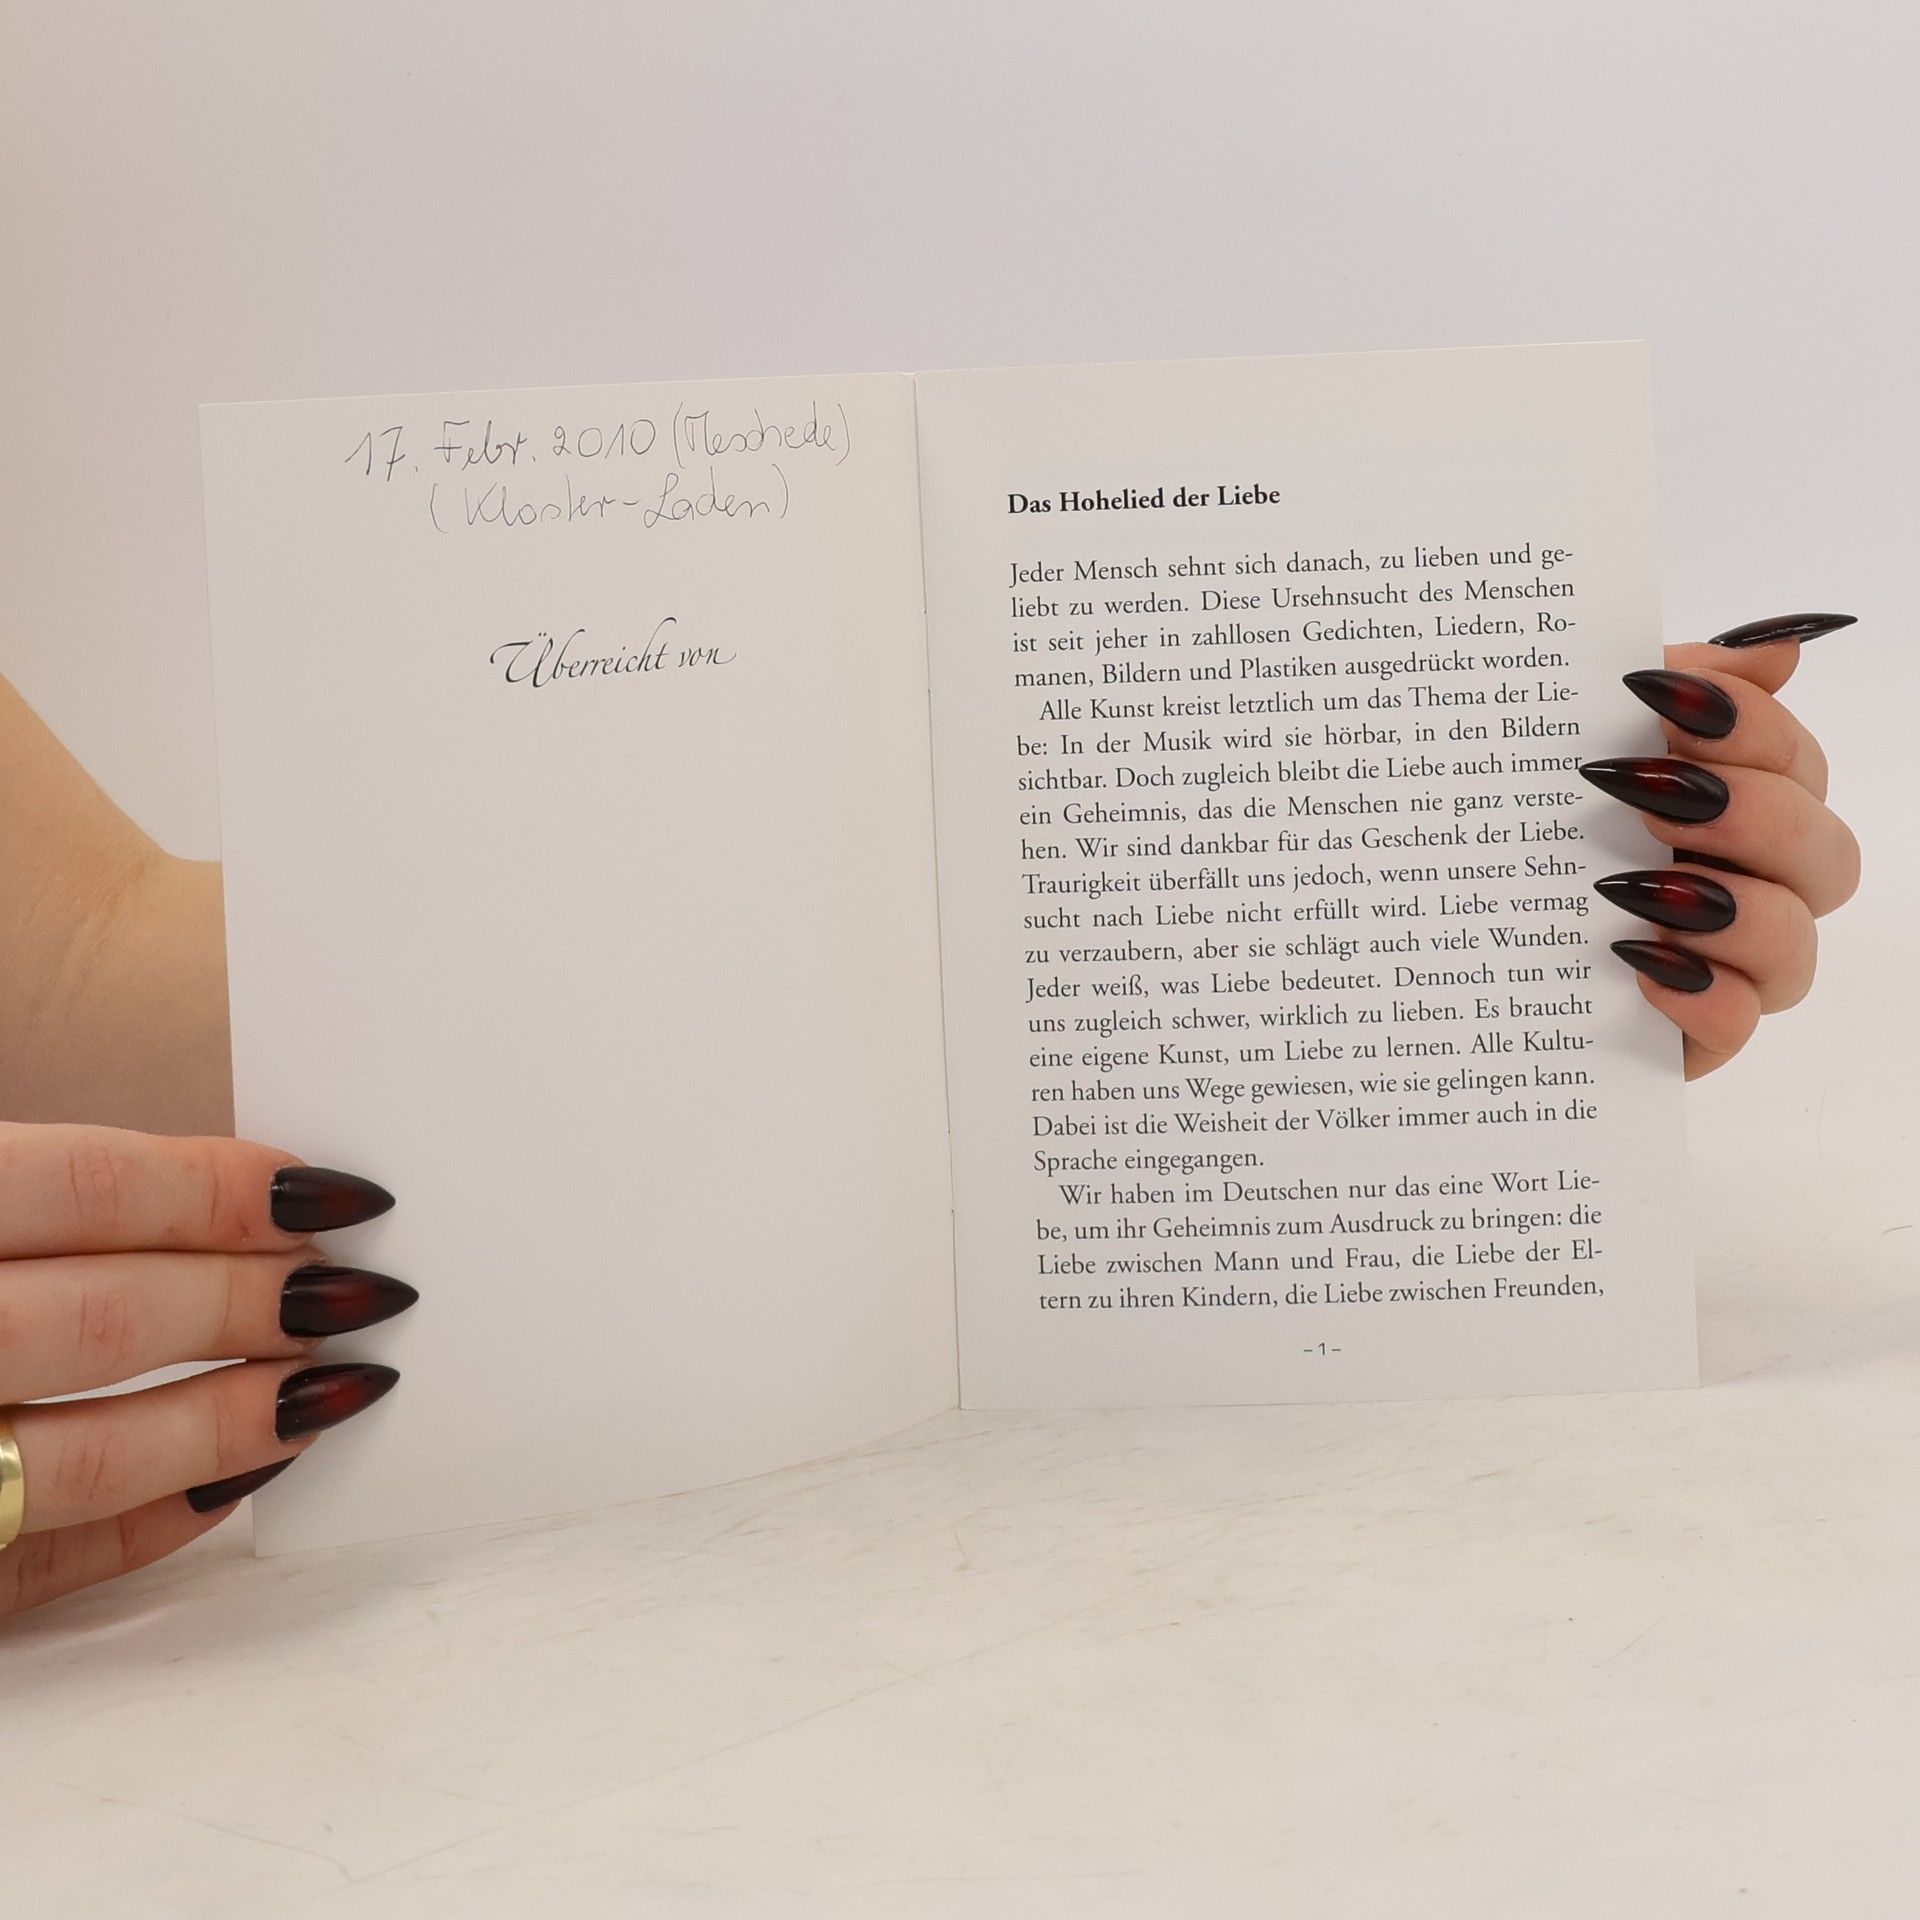 17. Febr. 2010 (Meschede)
(Kloster-Laden)
Überreicht von
Das Hohelied der Liebe
Jeder Mensch sehnt sich danach, zu lieben und ge-
liebt zu werden. Diese Ursehnsucht des Menschen
ist seit jeher in zahllosen Gedichten, Liedern, Ro-
manen, Bildern und Plastiken ausgedrückt worden.
Alle Kunst kreist letztlich um das Thema der Lie-
be: In der Musik wird sie hörbar, in den Bildern
sichtbar. Doch zugleich bleibt die Liebe auch immer
ein Geheimnis, das die Menschen nie ganz verste-
hen. Wir sind dankbar für das Geschenk der Liebe.
Traurigkeit überfällt uns jedoch, wenn unsere Sehn-
sucht nach Liebe nicht erfüllt wird. Liebe vermag
zu verzaubern, aber sie schlägt auch viele Wunden.
Jeder weiß, was Liebe bedeutet. Dennoch tun wir
uns zugleich schwer, wirklich zu lieben. Es braucht
eine eigene Kunst, um Liebe zu lernen. Alle Kultu-
ren haben uns Wege gewiesen, wie sie gelingen kann.
Dabei ist die Weisheit der Völker immer auch in die
Sprache eingegangen.
Wir haben im Deutschen nur das eine Wort Lie-
be, um ihr Geheimnis zum Ausdruck zu bringen: die
Liebe zwischen Mann und Frau, die Liebe der El-
tern zu ihren Kindern, die Liebe zwischen Freunden,
– 1 –